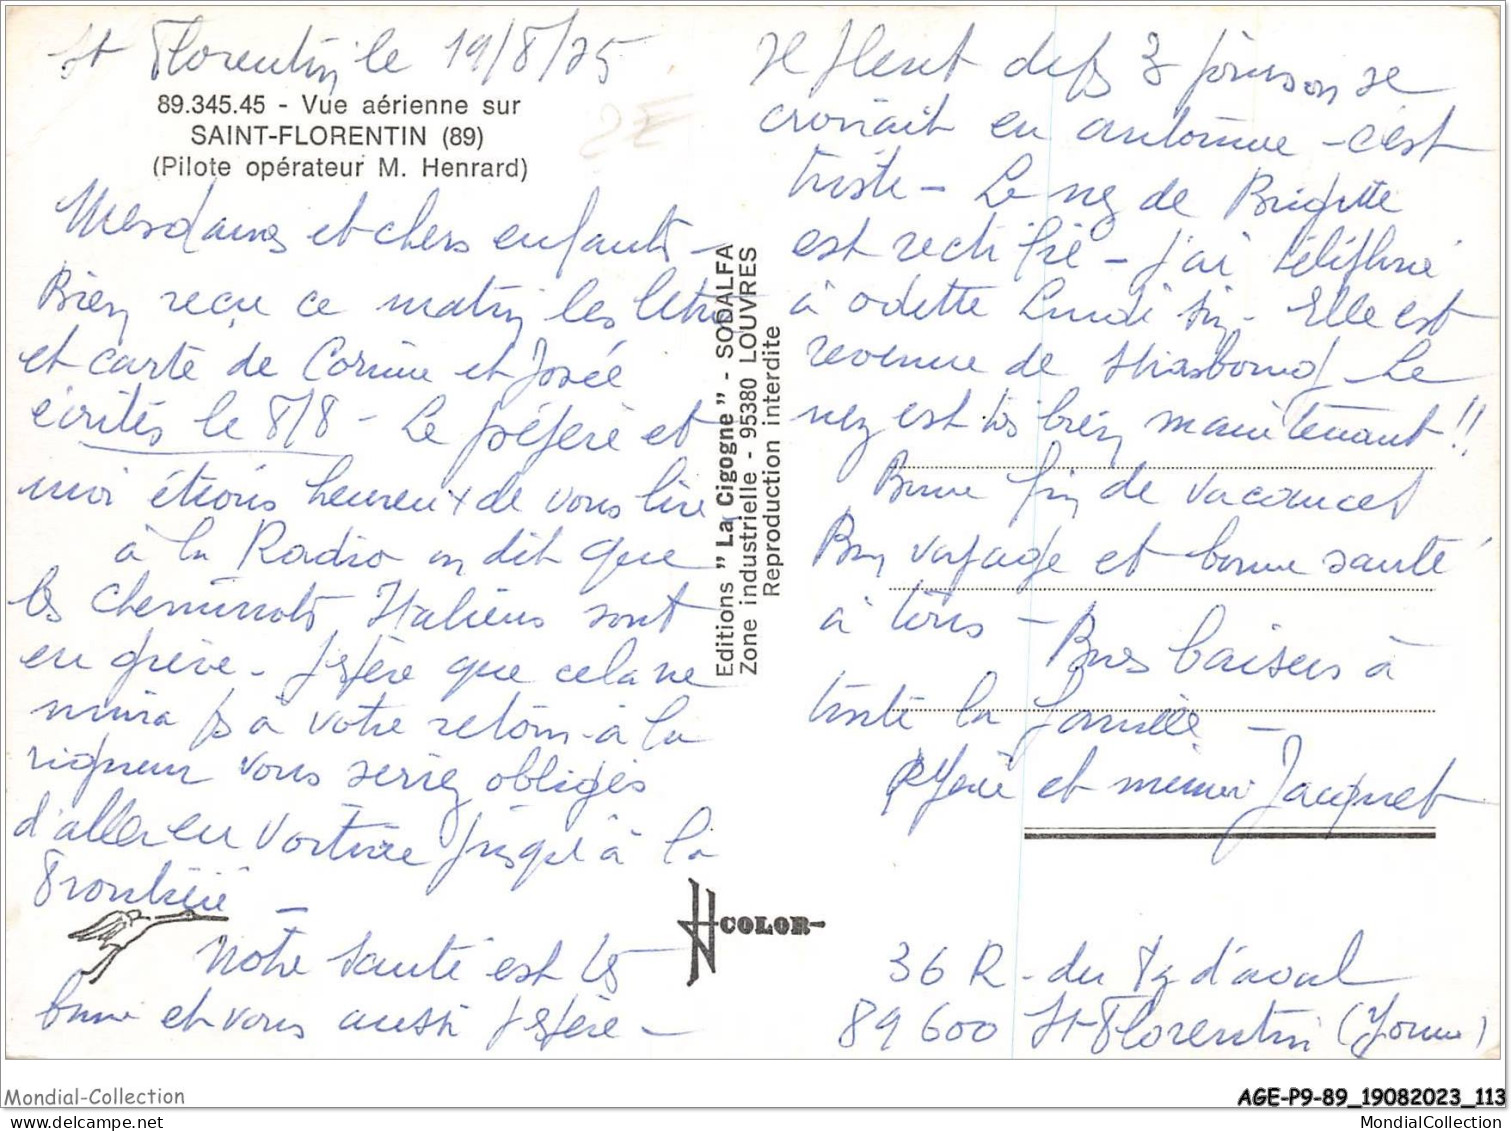 St Florentin, le 19/8/75
89.345.45 - Vue aérienne sur
SAINT-FLORENTIN (89)
(Pilote opérateur M. Henrard)
2E
Mesdames et chers enfants -
Bien reçu ce matin les lettres
et carte de Corinne et Josée
écrites le 8/8 - Le préféré et
moi étions heureux de vous lire
à la Radio on dit que
les cheminots Italiens sont
en grève - J'espère que cela ne
nuira ps à votre retour - à la
rigueur vous seriez obligés
d'aller en voiture jusqu'à la
Frontière -
Notre santé est tjs
bonne et vous aussi j'espère -
Editions " La Cigogne " - SODALFA
Zone industrielle - 95380 LOUVRES
Reproduction interdite
COLOR
Il pleut dps 3 jours on se
croirait en automne - c'est
triste - Le nez de Brigitte
est rectifié - j'ai téléphoné
à Odette Lundi - Elle est
revenue de Strasbourg Le
nez est tjs bien maintenant !!
Bonne fin de vacances
Bon voyage et bonne santé
à tous -
Bons baisers à
toute la famille -
et Jacquet
36 R - du d'aval
89600 St-Florentin (Yonne)
Mondial-Collection
AGE-P9-89_19082023_113
MondialCollection